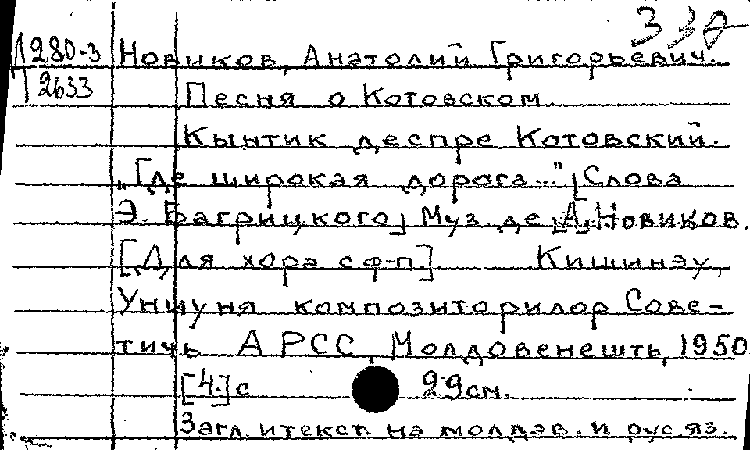 330
Д280-3 Новиков, Анатолий Григорьевич.
2633 Песня о Котовском.
Кынтик деспре Котовский.
„Где широкая дорога..."[Слова
Э. Багрицкого] Муз. де [А.]Новиков.
[Для хора с ф-п] Кишинэу,
Униуня композиторилор Сове-
тичь А РСС Молдовенешть, 1950
[4.]с 29см.
Загл. и текст на молдав. и рус. яз.